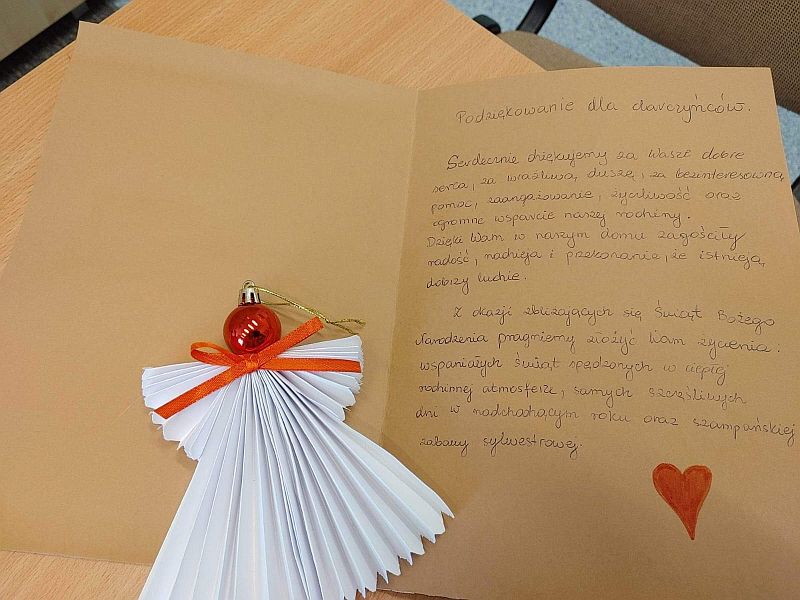 Podziękowanie dla darczyńców.
Serdecznie dziękujemy za Wasze dobre
serca, za wrażliwą duszę, za bezinteresowną
pomoc, zaangażowanie, życzliwość oraz
ogromne wsparcie naszej rodziny.
Dzięki Wam w naszym domu zagościły
radość, nadzieja i przekonanie, że istnieją
dobrzy ludzie.
Z okazji zbliżających się Świąt Bożego
Narodzenia pragniemy złożyć Wam życzenia:
wspaniałych świąt spędzonych w ciepłej
rodzinnej atmosferze, samych szczęśliwych
dni w nadchodzącym roku oraz szampańskiej
zabawy sylwestrowej.